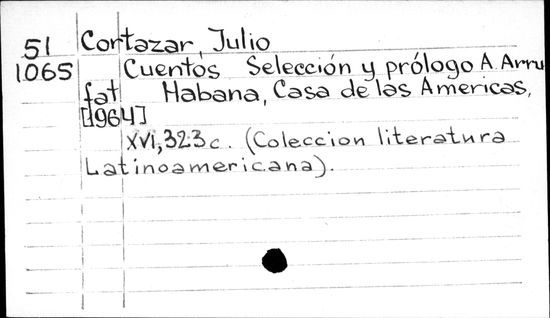 51 Cortazar, Julio
1065 Cuentos Selección y prólogo A. Arru
fat Habana, Casa de las Americas,
[1964]
XVI, 323 c. (Coleccion literatura
Latinoamericana).